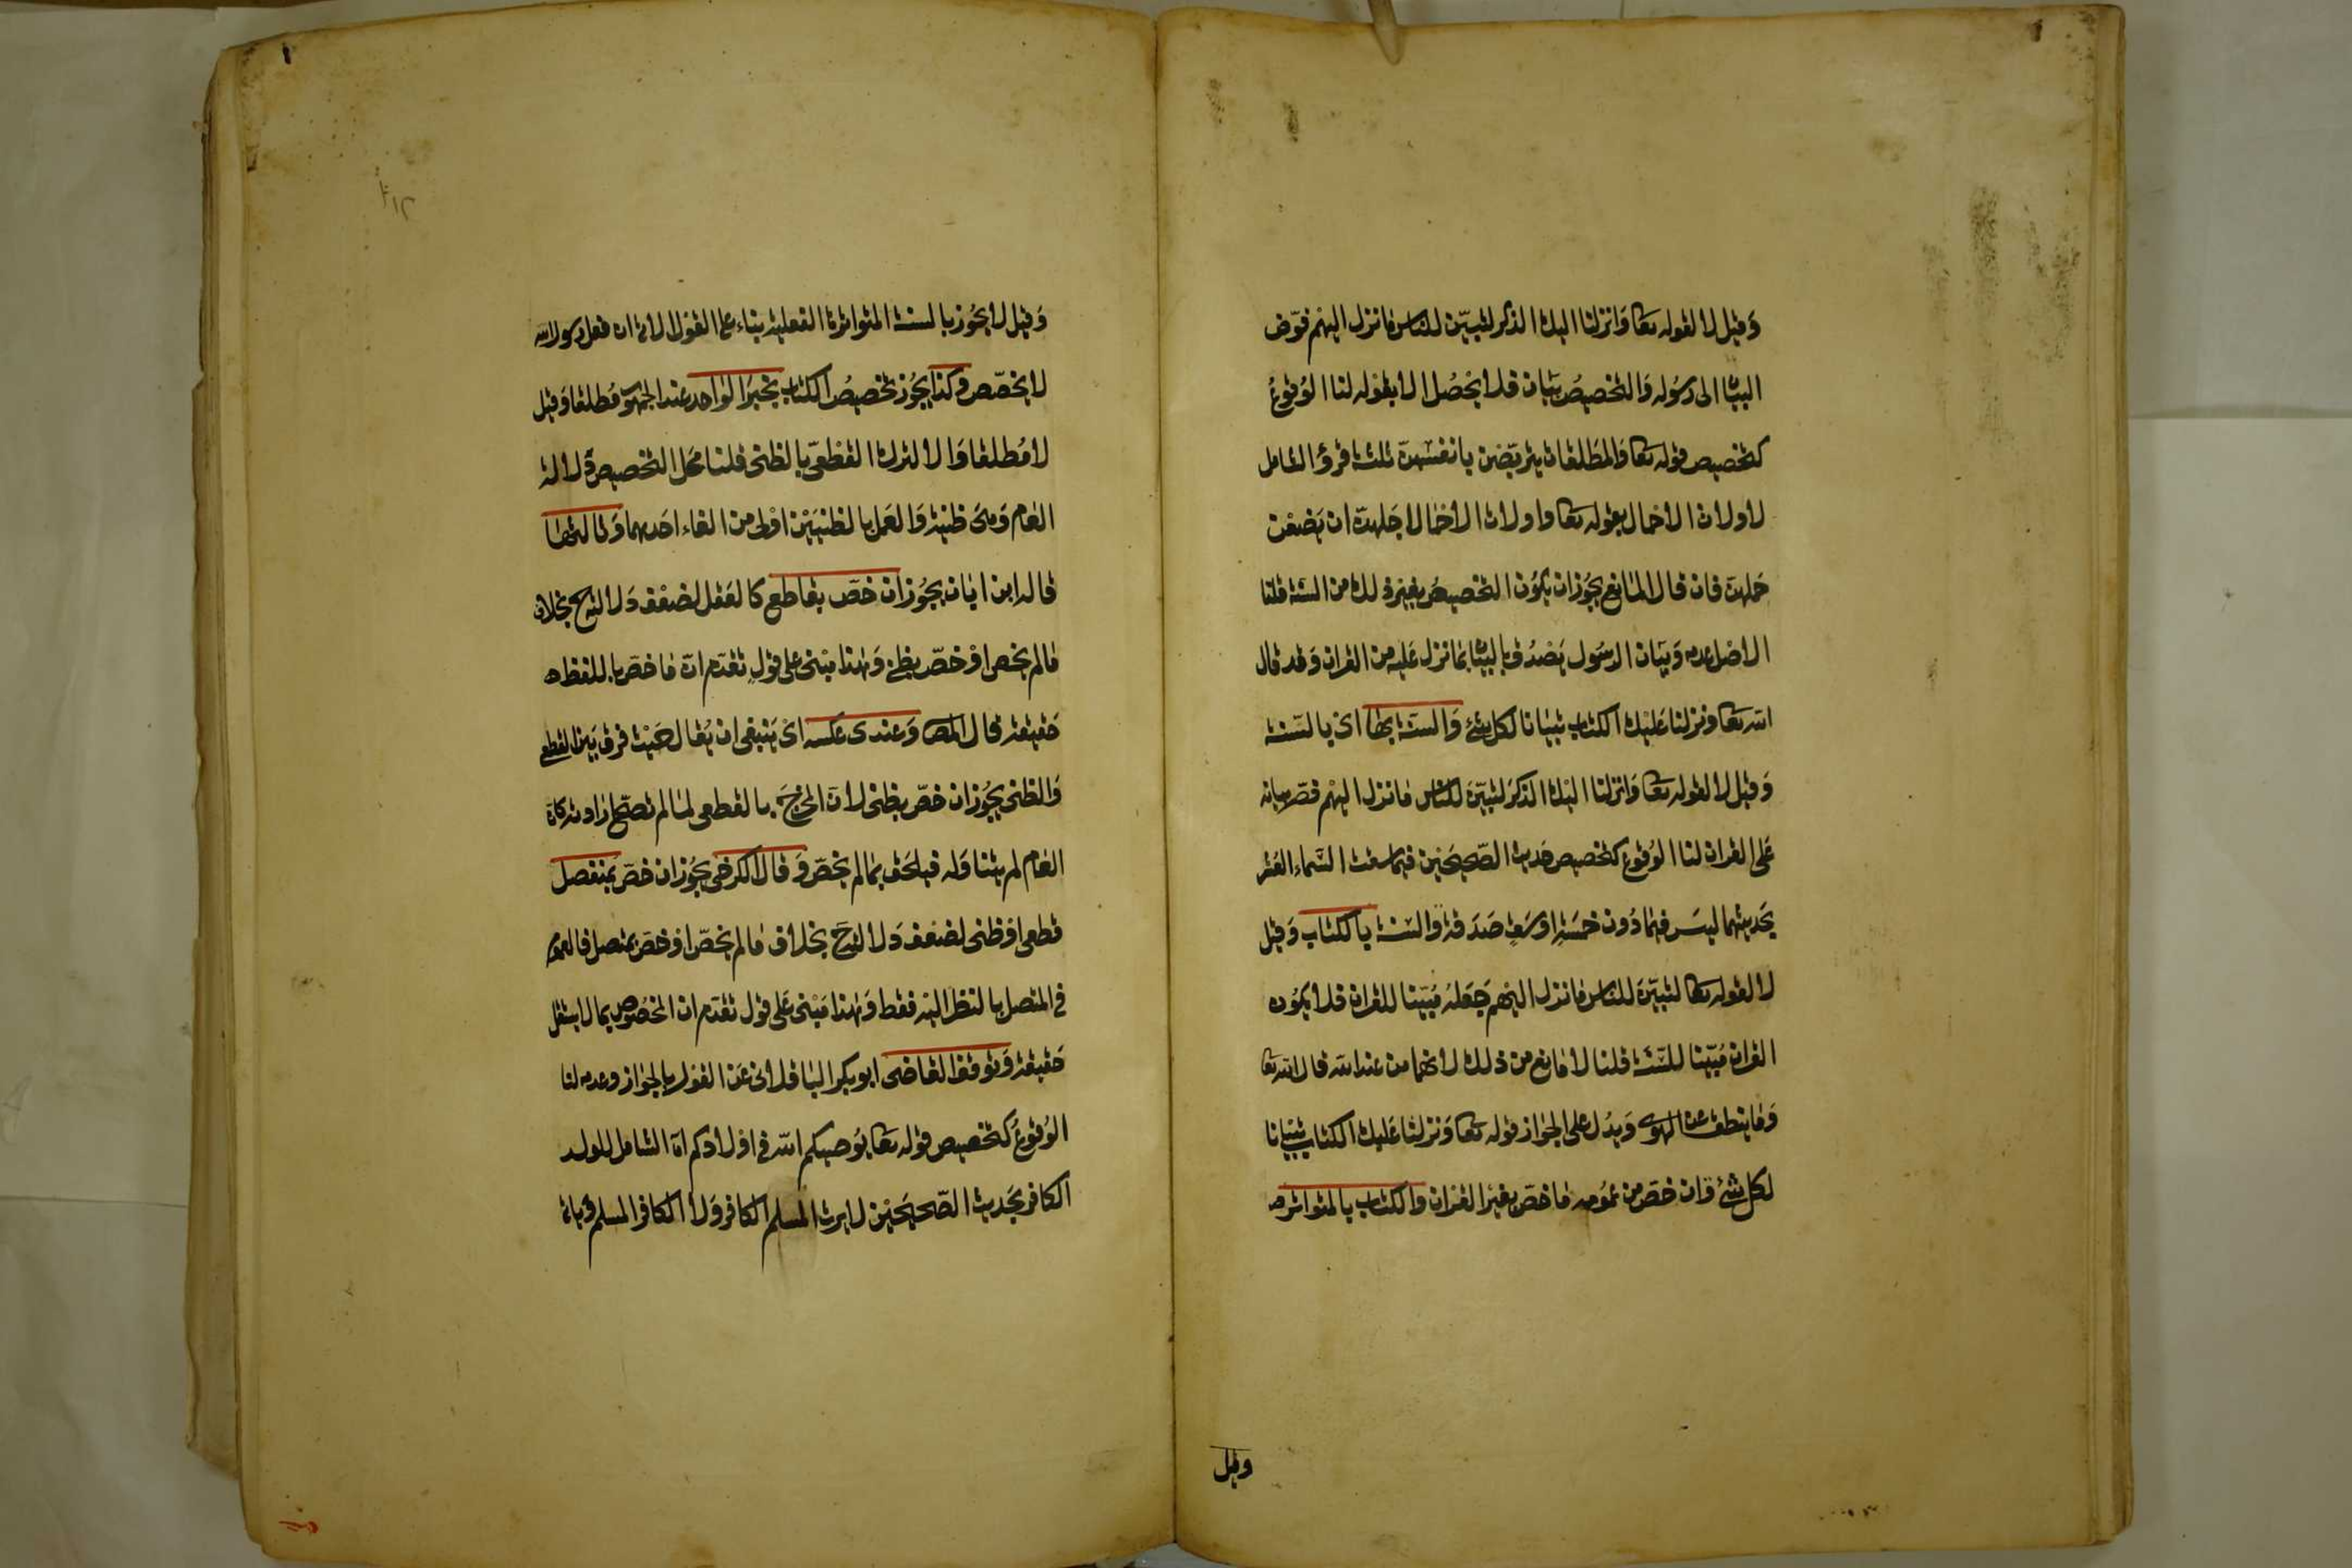 وَقيل لا لقوله تعا وَانزلنا اليك الذكر لتبيّن للناس مانزل اليهم فوّض
البيان الى رسُوله وَالتخصيصُ بَيان فلا يحْصُل الا بقوله لنا الوُقوعُ
كتخصيص قوله تعا وَالمطَلقات يتربّصْن بانفسهنّ ثلثة قروُ الشامل
لاولات الاحمال بقوله تعا واولات الاحمال اجَلهنّ ان يَضعْن
حَملهنّ فان قال المانع يجُوز ان يكوُن التخصيصُ بغير ذلك من السنّة قلنا
الاصْل عدمه وَبيَان الرسُول يَصْدُق بالبيان بما نزل عَليه من القران وَقد قال
الله تعا ونزلنا عَليْك الكتاب تبيانا لكل شئ وَالسنّة بها اى بالسّنة
وَقيل لا لقوله تعَا وَانزلنا اليْك الذكرَ لتبيّنَ للناس مانزل اليهْم قصّر بيانه
عَلى القران لنا الوُقوع كتخصيص حَديث الصّحيحَين فيما سقت السّماء العُشر
بحَديثهما ليسَ فيما دُون خمسَةِ اوسَقٍ صَدَقة وَالسّنة بالكتاب وَقيل
لا لقوله تعا لتبيّنَ للناس مانزل اليْهم جَعَلهُ مُبيّنا للقران فلا يكوُن
القران مُبيّنا للسّنّة قلنا لا مانع من ذلك لانهما من عند الله قال الله تعا
وَما ينطق عن الهوى وَيدُل على الجواز قوله تعا وَنزلنا عَليك الكتاب تبيَانا
لكل شئ وان خصّ من عمُومه ماخصّ بغير القران والكتاب بالمتواترة
وقيل
وَقيل لا يجُوز بالسنة المتواترة الفعلية بناء على القول الاتى ان فعل رسول الله
لا يخصّص وكذا يجُوز تخصيصُ الكتاب بخبرَ الواحد عند الجمهوَر مُطلقا وَقيل
لا مُطلقا وَالا لترك القطعىّ بالظنى قلنا محَل التخصيص دَلالة
العام وَهى ظنية وَالعَمل بالظنيَيْن اوْلى من الغاء احَدهما وَثالثها
قاله ابن ابان يجُوز ان خصّ بقاطع كالعَقل لضعْف دَلالته ح بخلاف
مالم يخص اوْ خصّ بظنى وَهذا مبْنى على قوْلٍ تقدّم انّ ماخصّ باللفظ
حَقيقة قال المصَ وَعندى عكسه اىْ يَنبغى ان يُقال حَيْث فرق بَين القطعى
وَالظنى يجُوز ان خصّ بظنى لانّ المخرَجَ بالقطعى لما لم تصحّ ارادته كانّ
العام لم يتناوَله فيلحَق بما لم يخصّ وَقال الكرخى يجُوز ان خصّ بمنفصل
قطعى اوْظنى لضعف دَلالته حَ بخلاف مالم يخصّ اوْخصّ بمتصل فالعموم
فى المتصل بالنظر اليْه فقط وَهذا مَبْنى عَلى قول تقدّم ان المخصُوص بما لا يستقل
حَقيقة وَتوقف القاضى ابوبكر الباقلانى عَن القول بالجواز وعدمه لنا
الوُقوعُ كتخصيص قوله تعا يوُصيكم الله فى اوْلادكم الخ الشامل للولد
الكافر بحَديث الصّحيحَين لايرث المسلم الكافرَ وَلا الكافر المسلم